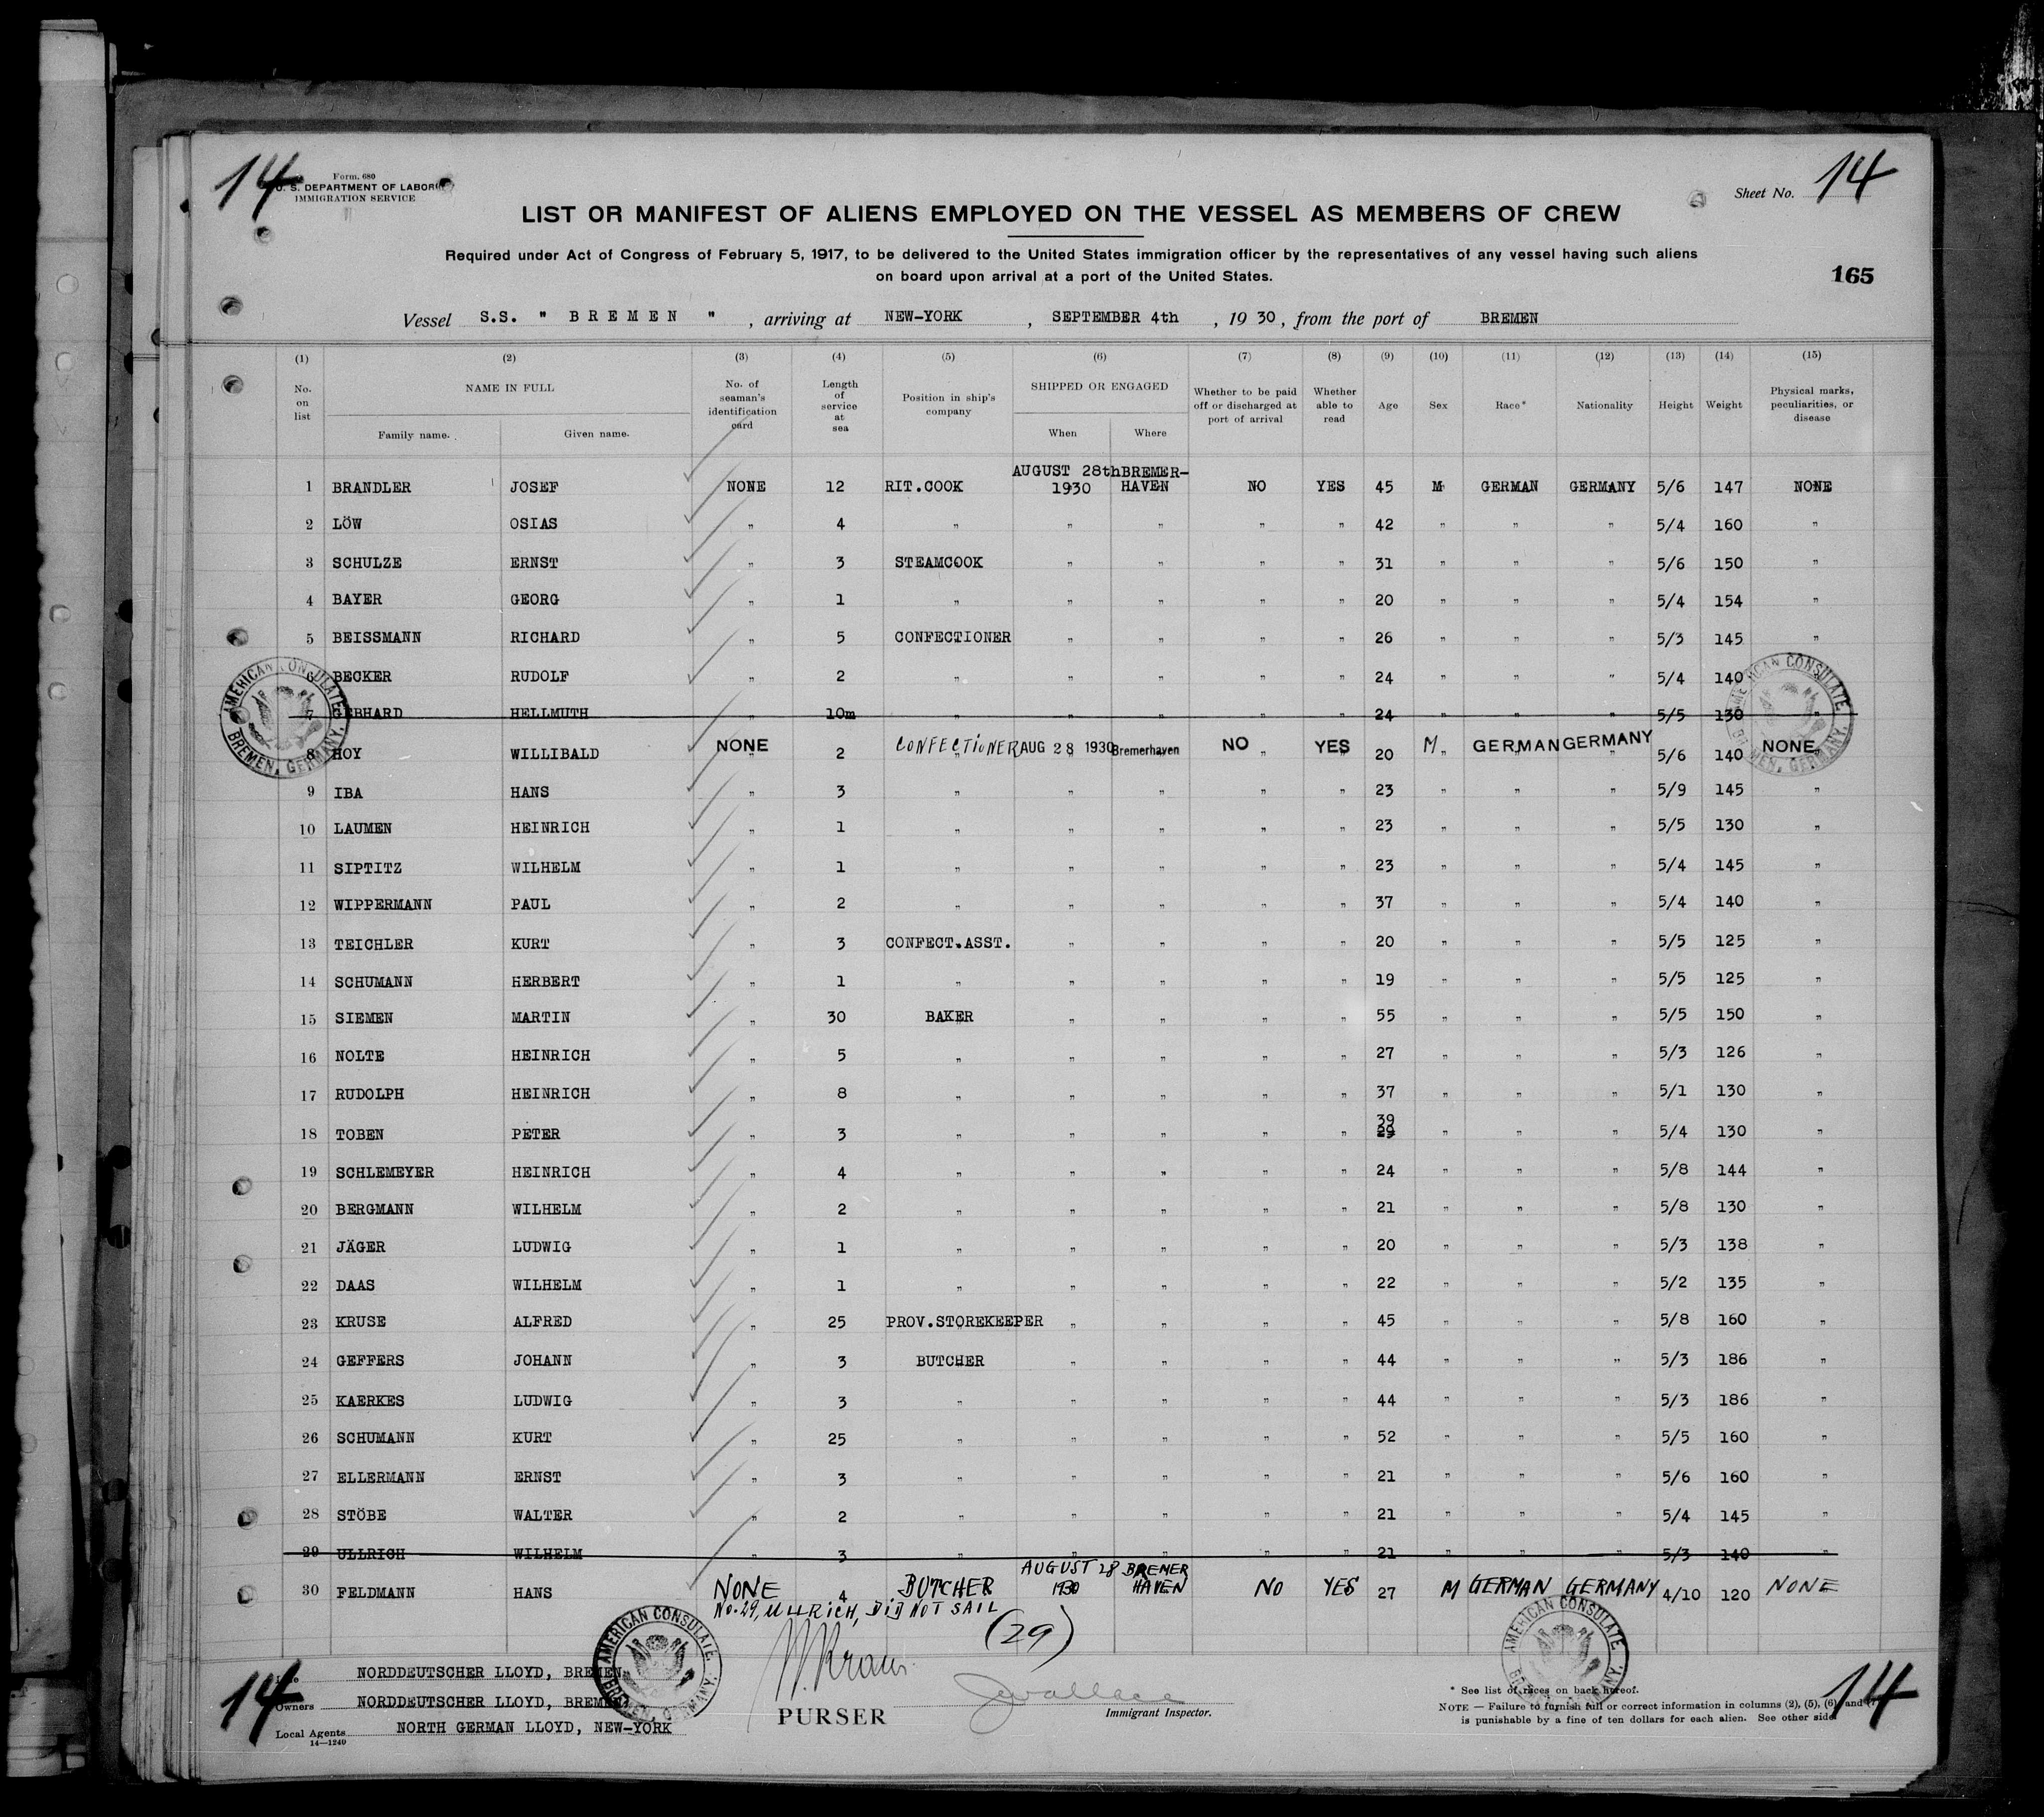 14
Form. 680
U. S. DEPARTMENT OF LABOR
IMMIGRATION SERVICE
Sheet No. 14
LIST OR MANIFEST OF ALIENS EMPLOYED ON THE VESSEL AS MEMBERS OF CREW
Required under Act of Congress of February 5, 1917, to be delivered to the United States immigration officer by the representatives of any vessel having such aliens
on board upon arrival at a port of the United States.
165
Vessel S.S. " BREMEN " , arriving at NEW-YORK , SEPTEMBER 4th , 19 30 , from the port of BREMEN
(1) (2) (3) (4) (5) (6) (7) (8) (9) (10) (11) (12) (13) (14) (15)
No. on list NAME IN FULL Family name. Given name. No. of seaman's identification card Length of service at sea Position in ship's company SHIPPED OR ENGAGED When Where Whether to be paid off or discharged at port of arrival Whether able to read Age Sex Race* Nationality Height Weight Physical marks, peculiarities, or disease
1 BRANDLER JOSEF NONE 12 RIT.COOK AUGUST 28th 1930 BREMER-HAVEN NO YES 45 M GERMAN GERMANY 5/6 147 NONE
2 LÖW OSIAS " 4 " " " " " 42 " " " 5/4 160 "
3 SCHULZE ERNST " 3 STEAMCOOK " " " " 31 " " " 5/6 150 "
4 BAYER GEORG " 1 " " " " " 20 " " " 5/4 154 "
5 BEISSMANN RICHARD " 5 CONFECTIONER " " " " 26 " " " 5/3 145 "
6 BECKER RUDOLF " 2 " " " " " 24 " " " 5/4 140 "
7 GEBHARD HELLMUTH " 10m " " " " " 24 " " " 5/5 130 "
8 HOY WILLIBALD NONE 2 CONFECTIONER AUG 28 1930 Bremerhaven NO YES 20 M GERMAN GERMANY 5/6 140 NONE
9 IBA HANS " 3 " " " " " 23 " " " 5/9 145 "
10 LAUMEN HEINRICH " 1 " " " " " 23 " " " 5/5 130 "
11 SIPTITZ WILHELM " 1 " " " " " 23 " " " 5/4 145 "
12 WIPPERMANN PAUL " 2 " " " " " 37 " " " 5/4 140 "
13 TEICHLER KURT " 3 CONFECT.ASST. " " " " 20 " " " 5/5 125 "
14 SCHUMANN HERBERT " 1 " " " " " 19 " " " 5/5 125 "
15 SIEMEN MARTIN " 30 BAKER " " " " 55 " " " 5/5 150 "
16 NOLTE HEINRICH " 5 " " " " " 27 " " " 5/3 126 "
17 RUDOLPH HEINRICH " 8 " " " " " 37 " " " 5/1 130 "
18 TOBEN PETER " 3 " " " " " 39 29 " " " 5/4 130 "
19 SCHLEMEYER HEINRICH " 4 " " " " " 24 " " " 5/8 144 "
20 BERGMANN WILHELM " 2 " " " " " 21 " " " 5/8 130 "
21 JÄGER LUDWIG " 1 " " " " " 20 " " " 5/3 138 "
22 DAAS WILHELM " 1 " " " " " 22 " " " 5/2 135 "
23 KRUSE ALFRED " 25 PROV.STOREKEEPER " " " " 45 " " " 5/8 160 "
24 GEFFERS JOHANN " 3 BUTCHER " " " " 44 " " " 5/3 186 "
25 KAERKES LUDWIG " 3 " " " " " 44 " " " 5/3 186 "
26 SCHUMANN KURT " 25 " " " " " 52 " " " 5/5 160 "
27 ELLERMANN ERNST " 3 " " " " " 21 " " " 5/6 160 "
28 STÖBE WALTER " 2 " " " " " 21 " " " 5/4 145 "
29 ULLRICH WILHELM " 3 " " " " " 21 " " " 5/3 140 "
30 FELDMANN HANS NONE 4 BUTCHER AUGUST 28 1930 BREMER HAVEN NO YES 27 M GERMAN GERMANY 4/10 120 NONE
No. 29, ULLRICH, DID NOT SAIL
(29)
AMERICAN CONSULATE, BREMEN, GERMANY.
AMERICAN CONSULATE, BREMEN, GERMANY.
AMERICAN CONSULATE, BREMEN, GERMANY.
AMERICAN CONSULATE, BREMEN, GERMANY.
14
NORDDEUTSCHER LLOYD, BREMEN
Owners NORDDEUTSCHER LLOYD, BREMEN
Local Agents NORTH GERMAN LLOYD, NEW-YORK
14—1240
W. Kraus
PURSER
JWallace
Immigrant Inspector.
* See list of races on back hereof.
NOTE — Failure to furnish full or correct information in columns (2), (5), (6) and (7)
is punishable by a fine of ten dollars for each alien. See other side
14